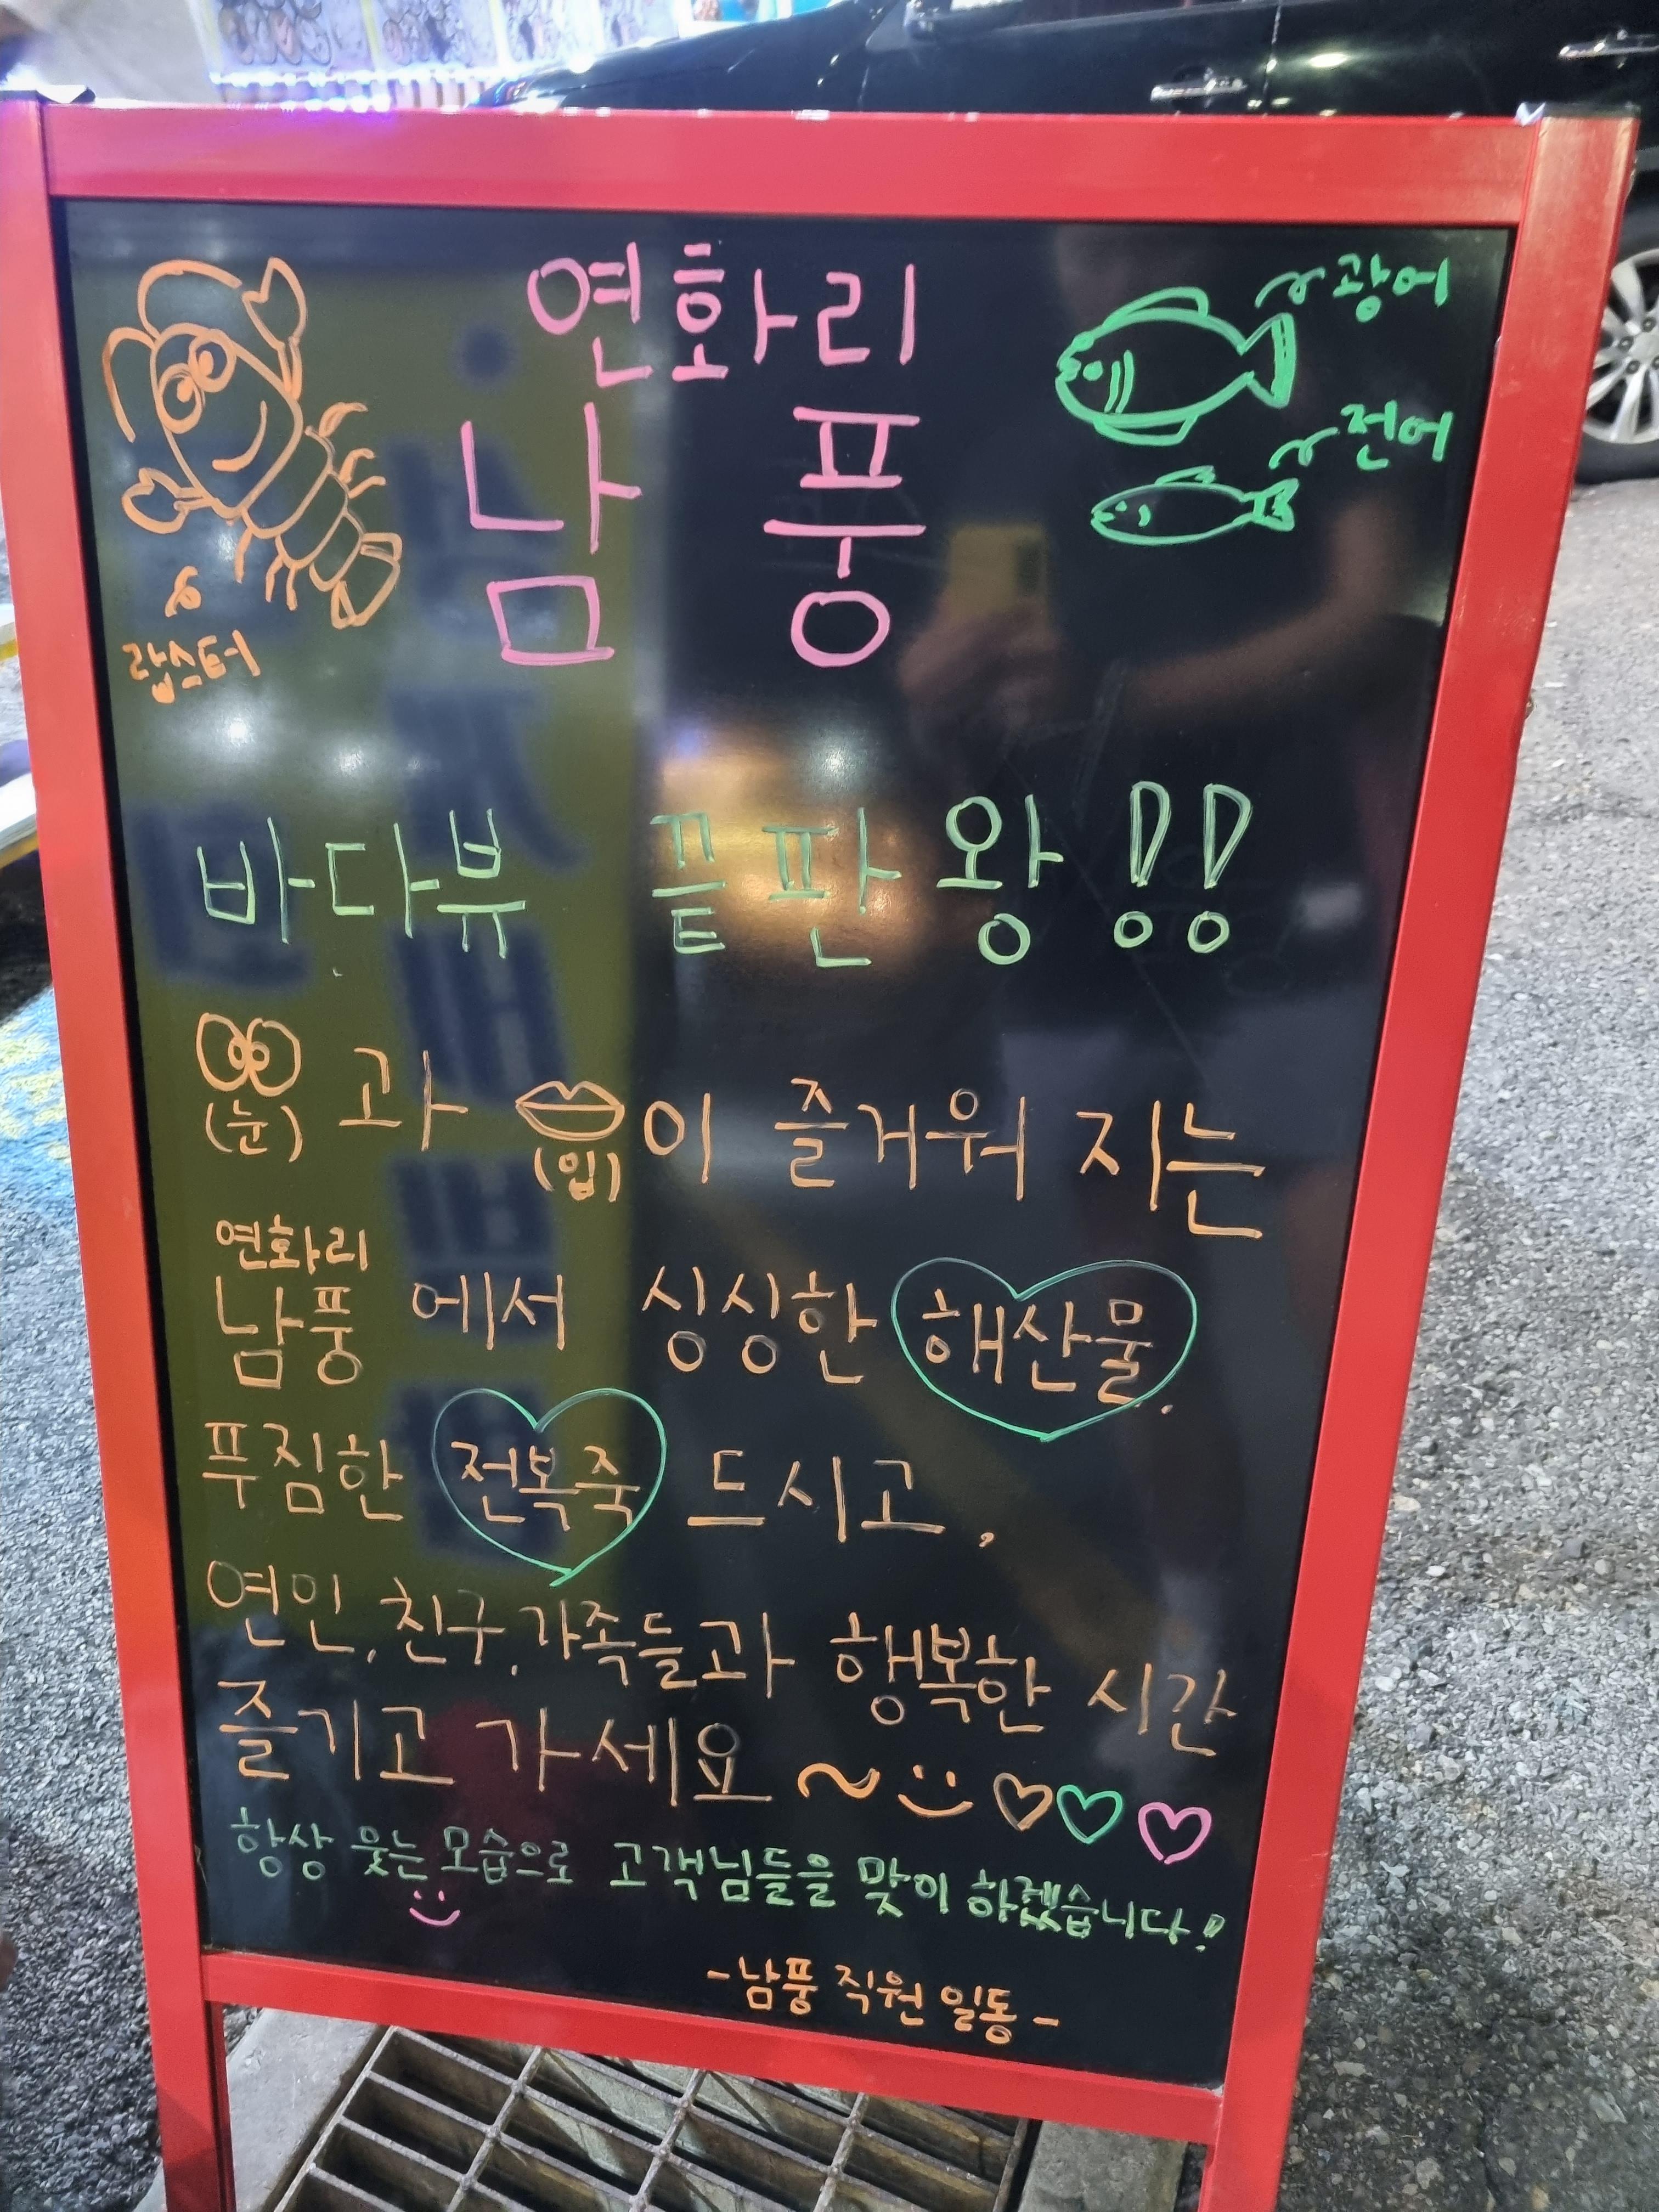 연화리
남풍
광어
전어
랍스터
바다뷰 끝판왕!!
(눈)과 (입)이 즐거워 지는
연화리
남풍에서 싱싱한 해산물,
푸짐한 전복죽 드시고,
연인, 친구, 가족들과 행복한 시간
즐기고 가세요~
항상 웃는 모습으로 고객님들을 맞이 하겠습니다!
-남풍 직원 일동-